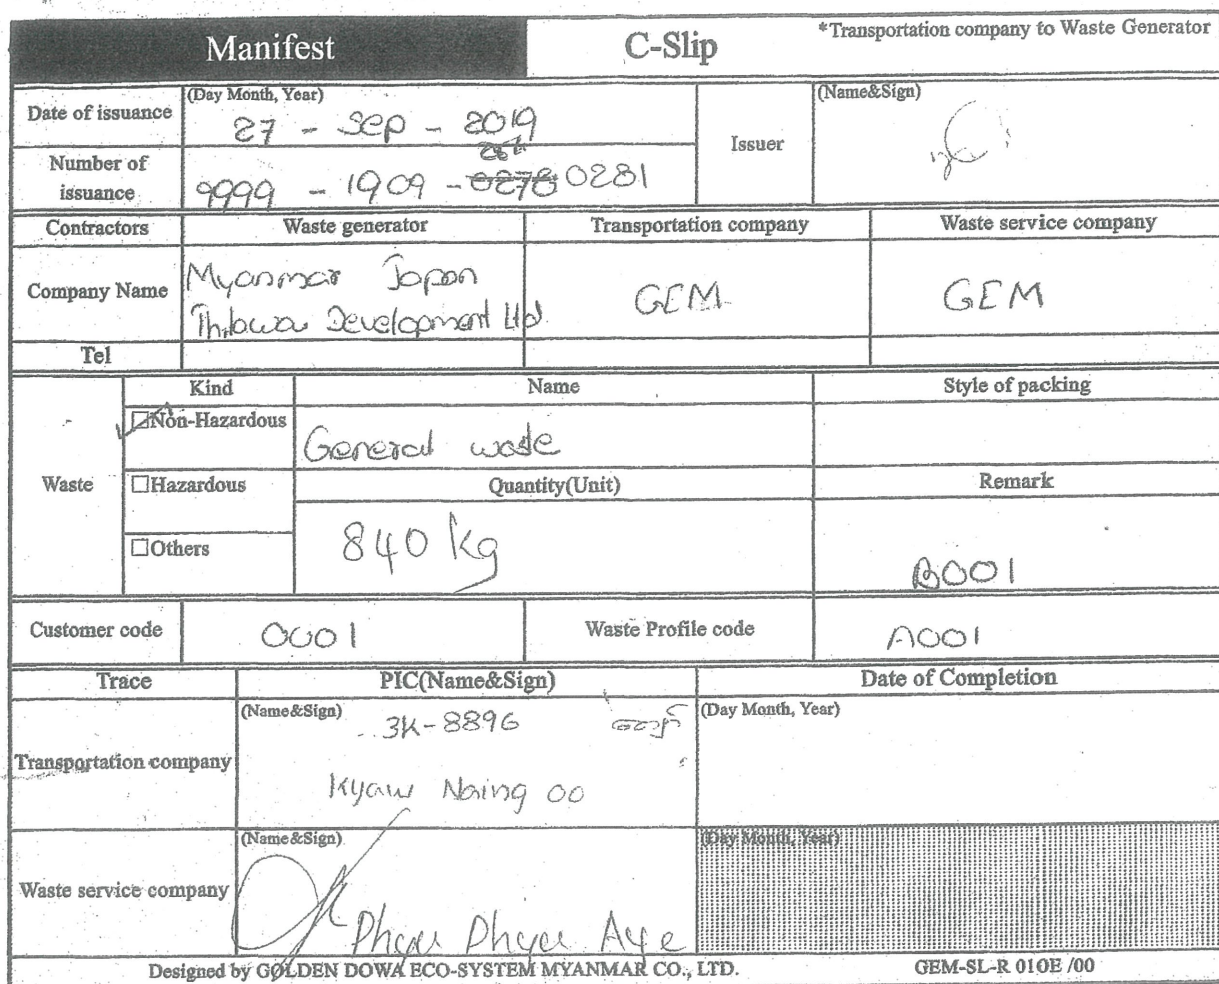 Manifest
C-Slip
*Transportation company to Waste Generator
Date of issuance
(Day Month, Year)
27 - Sep - 2019
Issuer
(Name&Sign)
Number of
issuance
9999 - 1909 - 0278 0281
Contractors
Waste generator
Transportation company
Waste service company
Company Name
Myanmar Japan
Thilawa Development Ltd.
GEM
GEM
Tel
Waste
Kind
Name
Style of packing
☑Non-Hazardous
General waste
☐Hazardous
Quantity(Unit)
Remark
☐Others
840 kg
B001
Customer code
0001
Waste Profile code
A001
Trace
PIC(Name&Sign)
Date of Completion
Transportation company
(Name&Sign)
3K-8896
Kyaw Naing oo
(Day Month, Year)
Waste service company
(Name&Sign)
Phyu Phyu Aye
(Day Month, Year)
Designed by GOLDEN DOWA ECO-SYSTEM MYANMAR CO., LTD.
GEM-SL-R 010E /00